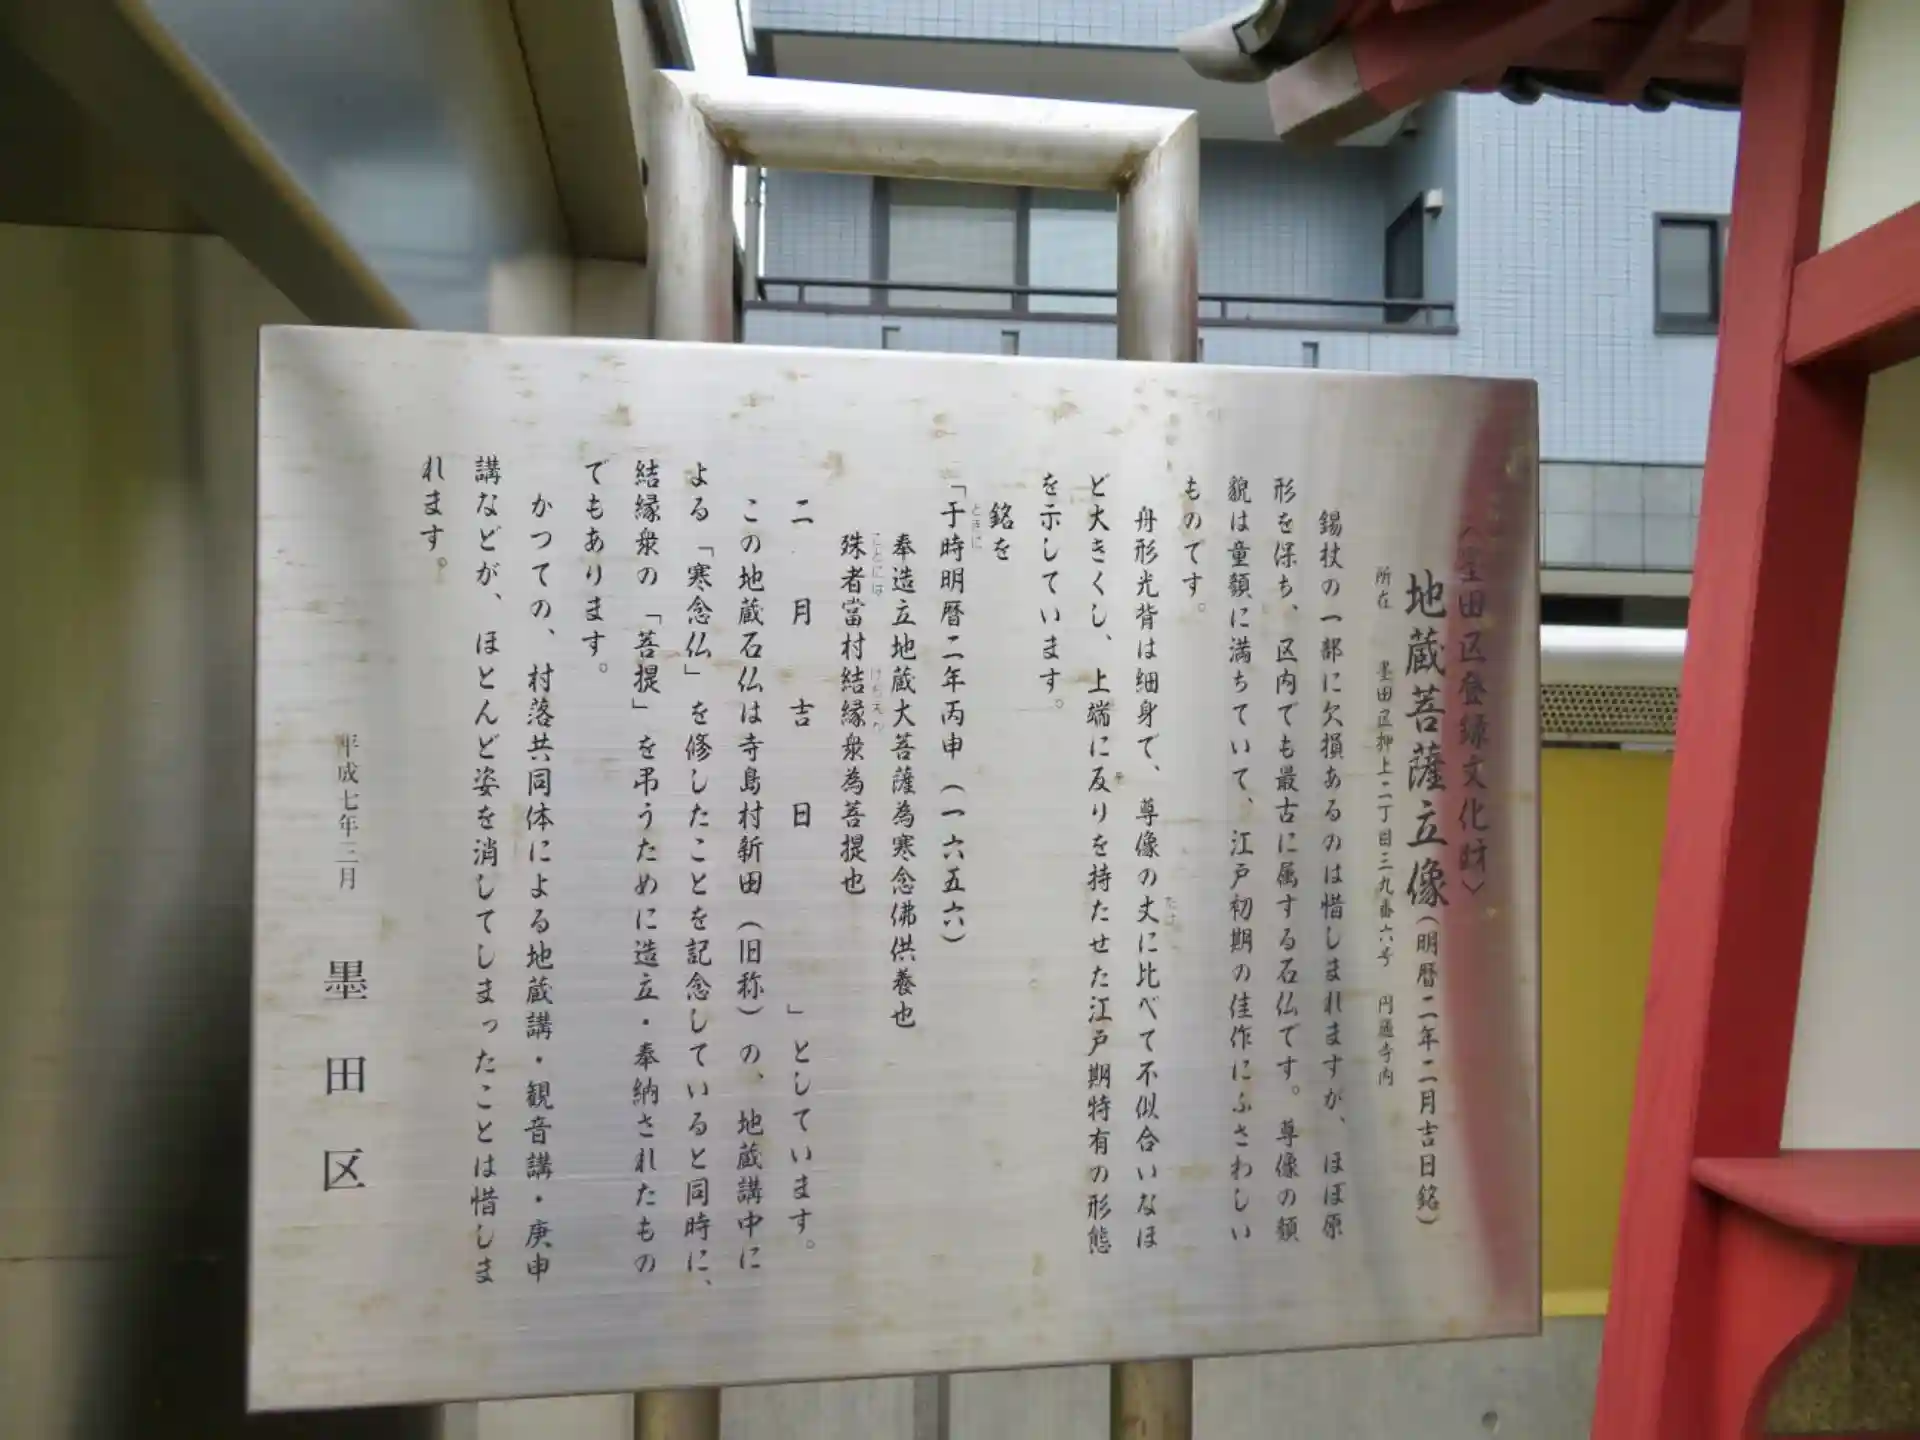 〈墨田区登録文化財〉
地蔵菩薩立像（明暦二年二月吉日銘）
所在　墨田区押上二丁目三九番六号　円通寺内
錫杖の一部に欠損あるのは惜しまれますが、ほぼ原
形を保ち、区内でも最古に属する石仏です。尊像の顔
貌は童顔に満ちていて、江戸初期の佳作にふさわしい
ものです。
舟形光背は細身で、尊像の丈に比べて不似合いなほ
たけ
ど大きくし、上端に反りを持たせた江戸期特有の形態
そ
を示しています。
銘を
「于時明暦二年丙申（一六五六）
ときに
奉造立地蔵大菩薩為寒念佛供養也
殊者當村結縁衆為菩提也
ことには　けちえん
二　月　吉　日　　　」としています。
この地蔵石仏は寺島村新田（旧称）の、地蔵講中に
よる「寒念仏」を修したことを記念していると同時に、
結縁衆の「菩提」を弔うために造立・奉納されたもの
でもあります。
かつての、村落共同体による地蔵講・観音講・庚申
講などが、ほとんど姿を消してしまったことは惜しま
れます。
平成七年三月　墨田区